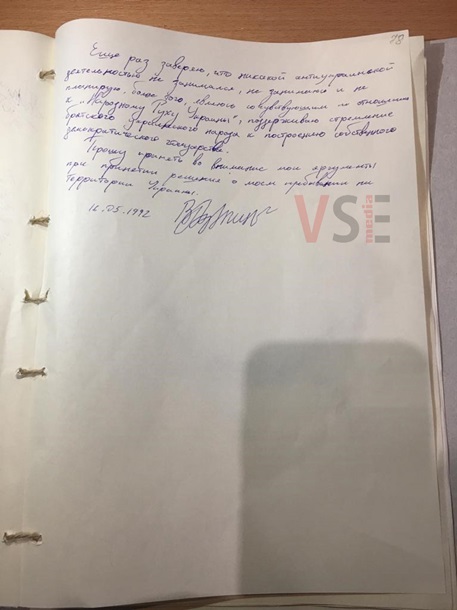 73
Еще раз заверяю, что никакой антиукраинской
деятельностью не занимался, не занимаюсь и не
планирую. Более того, являюсь сочувствующим по отношению
к "Народному Руху Украины", поддерживаю стремление
братского украинского народа к построению собственного
демократического государства.
Прошу принять во внимание мои аргументы
при принятии решения о моем пребывании на
территории Украины.
16.05.1992
VSE
media